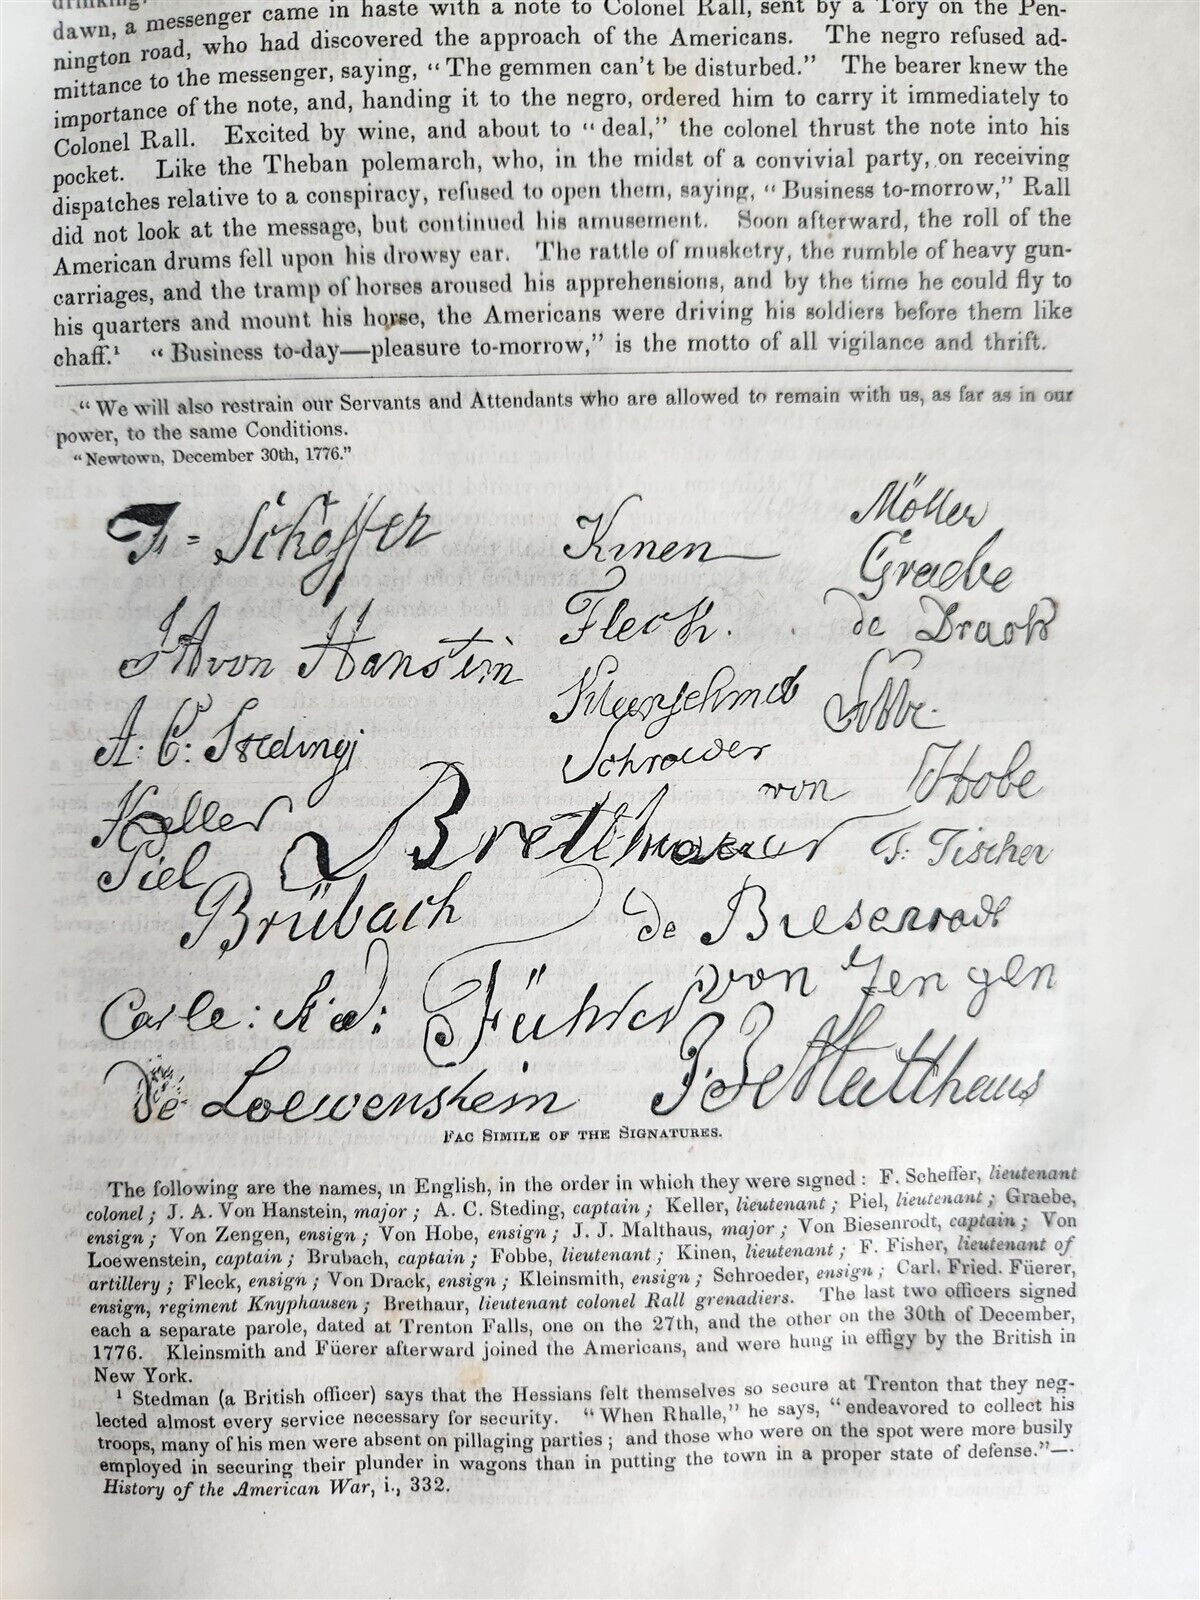 drinking.
dawn, a messenger came in haste with a note to Colonel Rall, sent by a Tory on the Pen-
nington road, who had discovered the approach of the Americans. The negro refused ad-
mittance to the messenger, saying, “The gemmen can’t be disturbed.” The bearer knew the
importance of the note, and, handing it to the negro, ordered him to carry it immediately to
Colonel Rall. Excited by wine, and about to “deal,” the colonel thrust the note into his
pocket. Like the Theban polemarch, who, in the midst of a convivial party, on receiving
dispatches relative to a conspiracy, refused to open them, saying, “Business to-morrow,” Rall
did not look at the message, but continued his amusement. Soon afterward, the roll of the
American drums fell upon his drowsy ear. The rattle of musketry, the rumble of heavy gun-
carriages, and the tramp of horses aroused his apprehensions, and by the time he could fly to
his quarters and mount his horse, the Americans were driving his soldiers before them like
chaff.¹ “Business to-day—pleasure to-morrow,” is the motto of all vigilance and thrift.
“We will also restrain our Servants and Attendants who are allowed to remain with us, as far as in our
power, to the same Conditions.
“Newtown, December 30th, 1776.”
Schöffer
JA von Hanstein
A: C: Steding
Keller
Piel
Brethaur
Brübach
Carle:
Führer
De Loewenstein
Kinen
Fleck.
Kleinschmidt
Schroeder
Möller
Graebe
de Drach
von Hobe
F: Fischer
de Biesenrodt
von Zengen
Matthaus
FAC SIMILE OF THE SIGNATURES.
The following are the names, in English, in the order in which they were signed: F. Scheffer, lieutenant
colonel; J. A. Von Hanstein, major; A. C. Steding, captain; Keller, lieutenant; Piel, lieutenant; Graebe,
ensign; Von Zengen, ensign; Von Hobe, ensign; J. J. Malthaus, major; Von Biesenrodt, captain; Von
Loewenstein, captain; Brubach, captain; Fobbe, lieutenant; Kinen, lieutenant; F. Fisher, lieutenant of
artillery; Fleck, ensign; Von Drack, ensign; Kleinsmith, ensign; Schroeder, ensign; Carl. Fried. Füerer,
ensign, regiment Knyphausen; Brethaur, lieutenant colonel Rall grenadiers. The last two officers signed
each a separate parole, dated at Trenton Falls, one on the 27th, and the other on the 30th of December,
1776. Kleinsmith and Füerer afterward joined the Americans, and were hung in effigy by the British in
New York.
¹ Stedman (a British officer) says that the Hessians felt themselves so secure at Trenton that they neg-
lected almost every service necessary for security. “When Rhalle,” he says, “endeavored to collect his
troops, many of his men were absent on pillaging parties; and those who were on the spot were more busily
employed in securing their plunder in wagons than in putting the town in a proper state of defense.”—
History of the American War, i., 332.